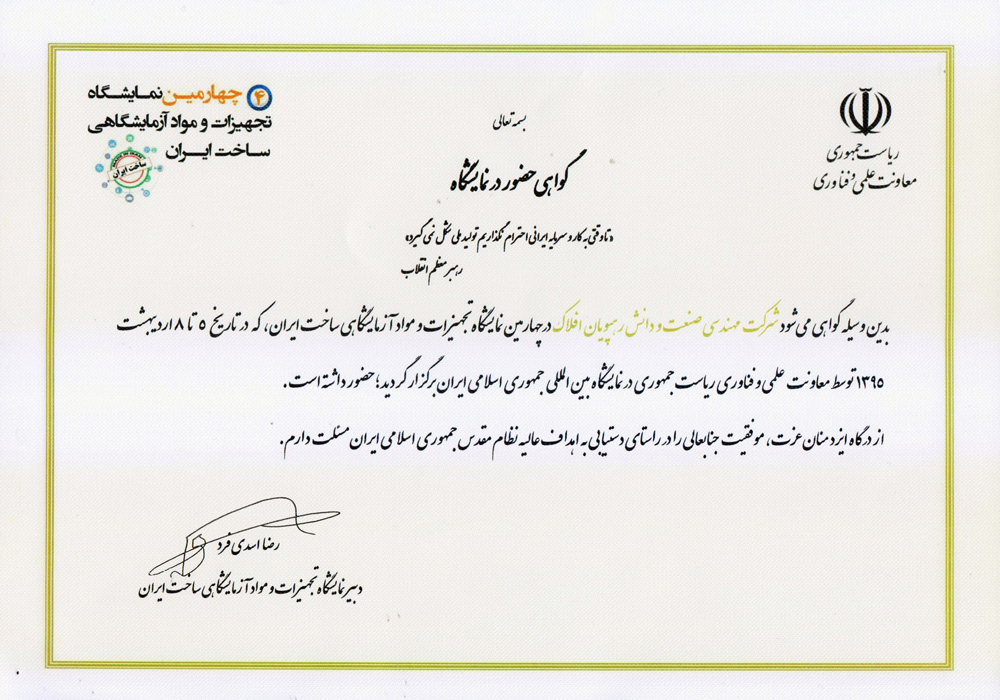 ۴ چهارمین نمایشگاه
تجهیزات و مواد آزمایشگاهی
ساخت ایران
ساخت ایران
ریاست جمهوری
معاونت علمی و فناوری
بسمه تعالی
گواهی حضور در نمایشگاه
«تا وقتی به کار و سرمایه ایرانی احترام نگذاریم تولید ملی شکل نمی گیرد»
رهبر معظم انقلاب
بدین وسیله گواهی می شود شرکت مهندسی صنعت و دانش رهپویان افلاک در چهارمین نمایشگاه تجهیزات و مواد آزمایشگاهی ساخت ایران، که در تاریخ ۵ تا ۸ اردیبهشت
۱۳۹۵ توسط معاونت علمی و فناوری ریاست جمهوری در نمایشگاه بین المللی جمهوری اسلامی ایران برگزار گردید؛ حضور داشته است.
از درگاه ایزد منان عزت، موفقیت جنابعالی را در راستای دستیابی به اهداف عالیه نظام مقدس جمهوری اسلامی ایران مسئلت دارم.
رضا اسدی فرد
دبیر نمایشگاه تجهیزات و مواد آزمایشگاهی ساخت ایران